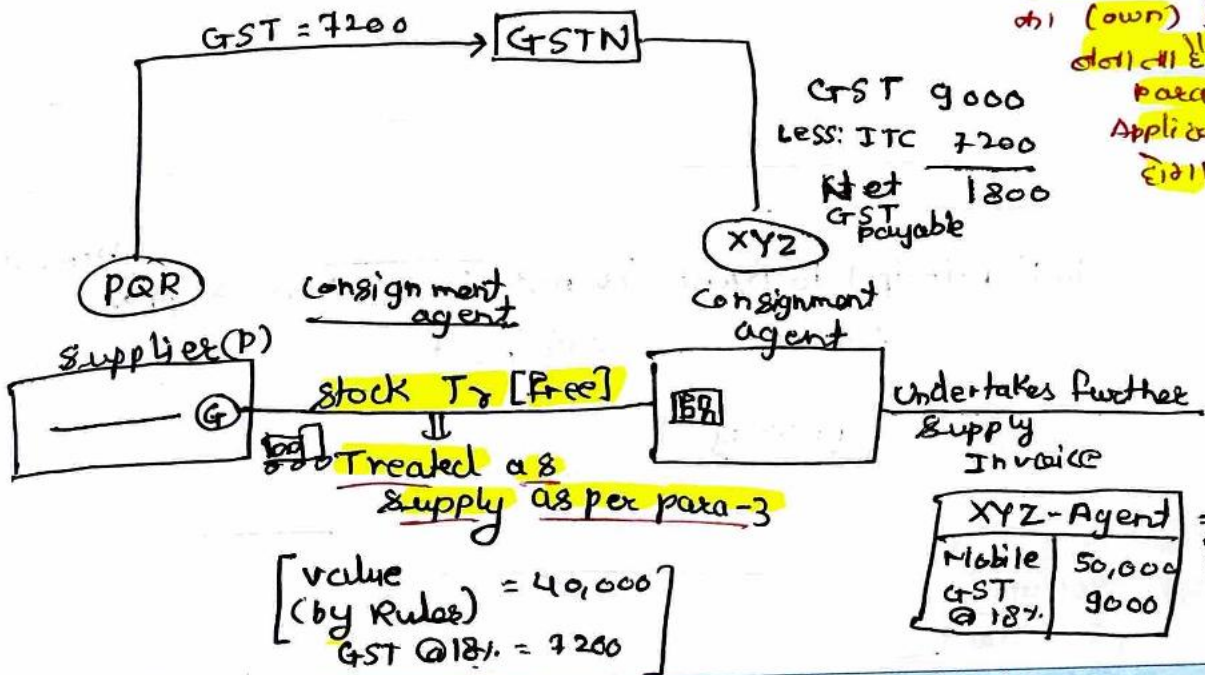 GST = 7200
GSTN
(own)
GST 9000
Less: ITC 7200
Net 1800
GST payable
para
Applica
XYZ
PQR
Consignment
agent
Consignment
agent
Supplier(P)
G
Stock Tr [Free]
Treated as
supply as per para-3
undertakes further
supply
Invoice
XYZ-Agent
Mobile 50,000
GST 9000
@ 18%
value = 40,000
(by Rules)
GST @18% = 7200